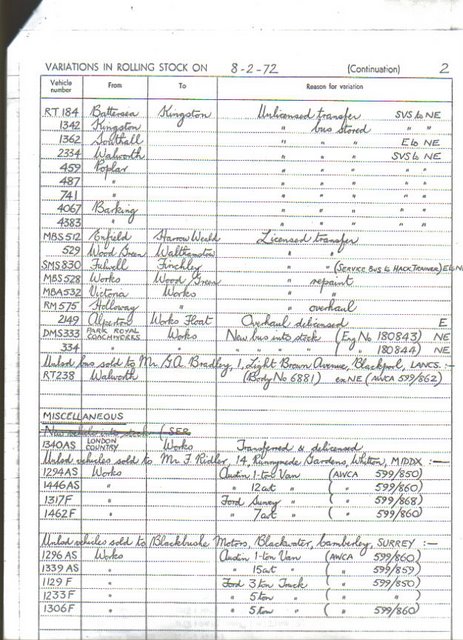 VARIATIONS IN ROLLING STOCK ON 8-2-72 (Continuation) 2
Vehicle number From To Reason for variation
RT 184 Battersea Kingston Unlicensed transfer SVS to NE
1342 Kingston " bus stored " "
1362 Southall " " " E to NE
2334 Walworth " " " SVS to NE
459 Poplar " " " " "
487 " " " " " "
741 " " " " " "
4067 Barking " " " " "
4383 " " " " " "
MBS 512 Enfield Harrow Weald Licensed transfer
529 Wood Green Walthamstow " "
SMS 830 Fulwell Finchley " " (SERVICE BUS to HACK TRAINER) E to N
MBS 528 Works Wood Green " repaint
MBA 532 Victoria Works " "
RM 575 Holloway " " overhaul
2149 Alperton Works Float Overhaul delicensed E
DMS 333 PARK ROYAL COACHWORKS Works New bus into stock (Eng No 180843) NE
334 " " " " " ( " " 180844) NE
Unlicd bus sold to Mr. G.A. Bradley, 1, Light Brown Avenue, Blackpool, LANCS. :—
RT238 Walworth (Body No 6881) ex NE (AWCA 599/862)
MISCELLANEOUS
1340AS LONDON COUNTRY Works Transferred & delicensed
Unlicd vehicles sold to Mr F. Ridler, 14, Runnymede Gardens, Whitton, MIDDX :—
1294AS Works Austin 1-ton Van (AWCA 599/850)
1446AS " " 12cwt ( " 599/860)
1317F " Ford Survey " ( " 599/868)
1462F " " 7cwt " ( " 599/860)
Unlicd vehicles sold to Blackbushe Motors, Blackwater, Camberley, SURREY :—
1296 AS Works Austin 1-ton Van (AWCA 599/860)
1339 AS " " 15cwt " ( " 599/859)
1129 F " Ford 3 ton Truck ( " 599/850)
1233 F " " 5 ton " ( "
1306 F " " 5 ton " ( " 599/860)